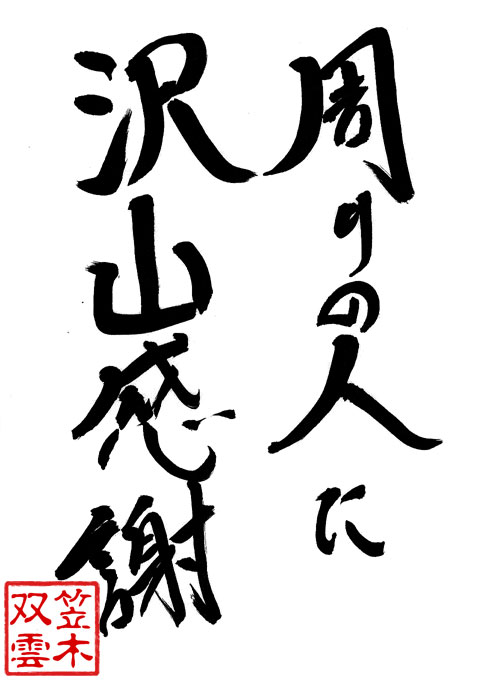 周りの人に
沢山感謝
笠木
双雲